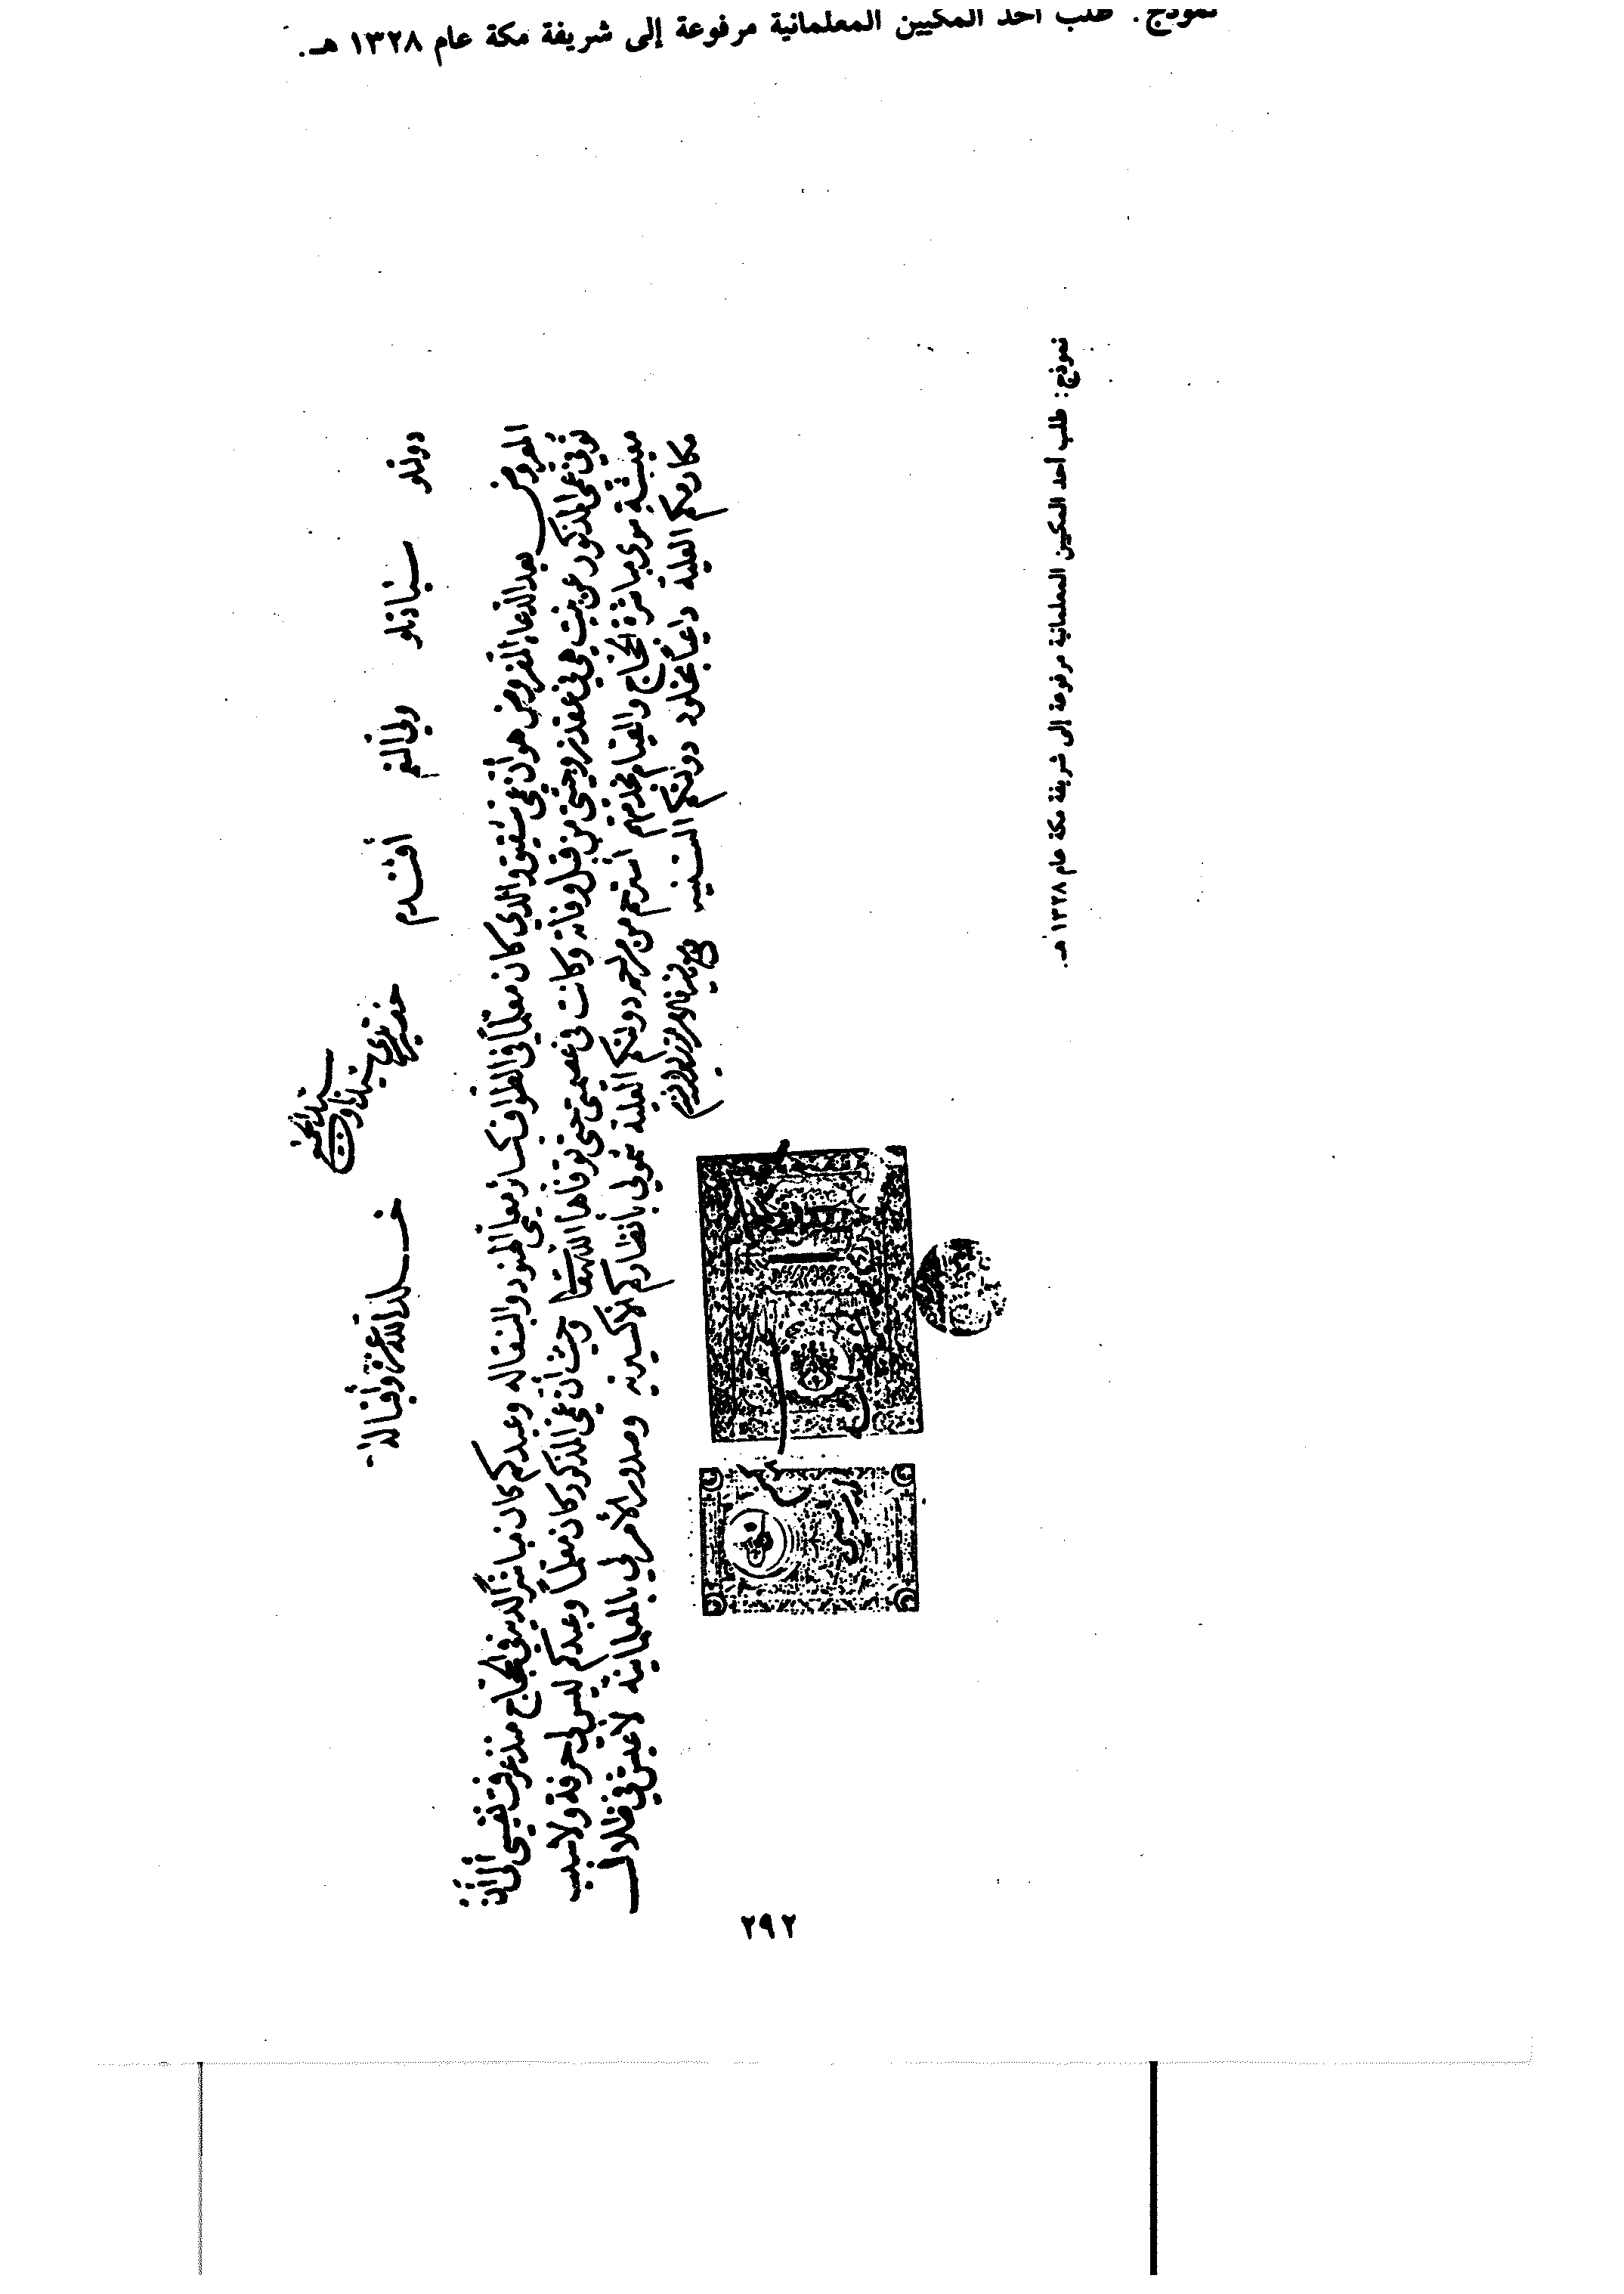 نموذج. طلب أحد المكيين المعلمانية مرفوعة إلى شريفة مكة عام ١٣٢٨ هـ.
دولتلو سيادتلو ولي النعم أفندم حضرتلري سيدنا وسيد الجميع خلد الله عزه وإقباله
المعروض بعد الدعاء المفروض هو أن عمي شقيق والدي كان معلماً في الطوافة كسائر معلمي الهنود والبنقاله وعبدكم كان مباشراً لديه في الحجاج منذ عرفت نفسي إلى أن
توفي عمي المذكور عن بنت هي في عقد زوجيتي من قبل وفاته وكانت في عصمتي حتى توفاها الله تعالى وحيث أن عمي المذكور كان معلماً وعبدكم ليس لي حرفة ولا سبب
معيشة سوى مباشرة الحجاج والقيام بخدمتهم أسترحم من مراحم دولتكم العلية شمولي بأنظاركم الأكسيرية وصدور الأمر لي بالمعلمانية لأعيش في ظلال
مكارمكم العلية داعياً بخلود دولتكم السنية
نموذج: طلب أحد المكيين المعلمانية مرفوعة إلى شريفة مكة عام ١٣٢٨ هـ.
٢٩٢